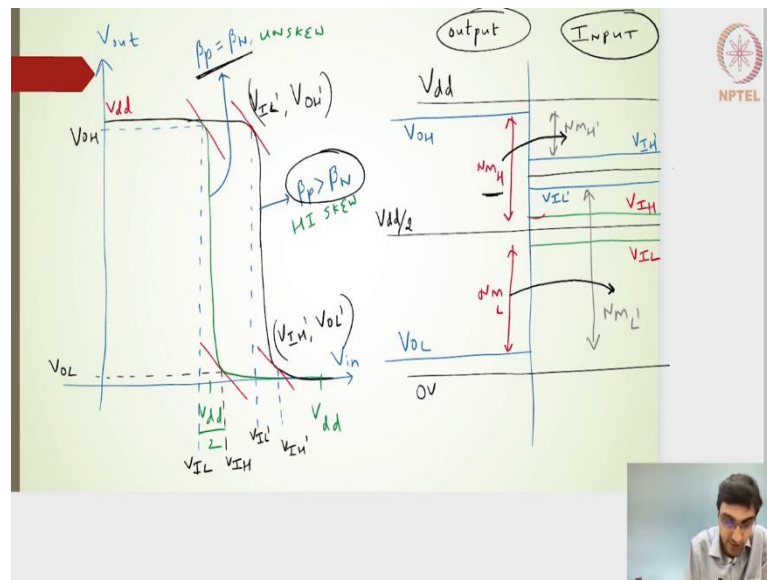 Vout
βp = βN, UNSKEW
Vdd
VOH
(VIL', VOH')
βp > βN
HI SKEW
(VIH', VOL')
Vin
VOL
Vdd
2
Vdd
VIL
VIH
VIL'
VIH'
output
INPUT
Vdd
VOH
NMH
NMH'
VIH'
VIL'
VIH
Vdd/2
VIL
NML
NML'
VOL
0V
NPTEL